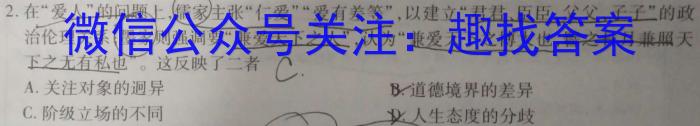 2.在“爱人”的问题上,儒家主张“仁爱”“爱有差等”,以建立“君君、臣臣、父父、子子”的政
治伦
微信公众号关注：趣找答案
兼照天
下之无有私也”。这反映了二者
C.
A.关注对象的迥异
B.道德境界的差异
C.阶级立场的不同
D.人生态度的分歧